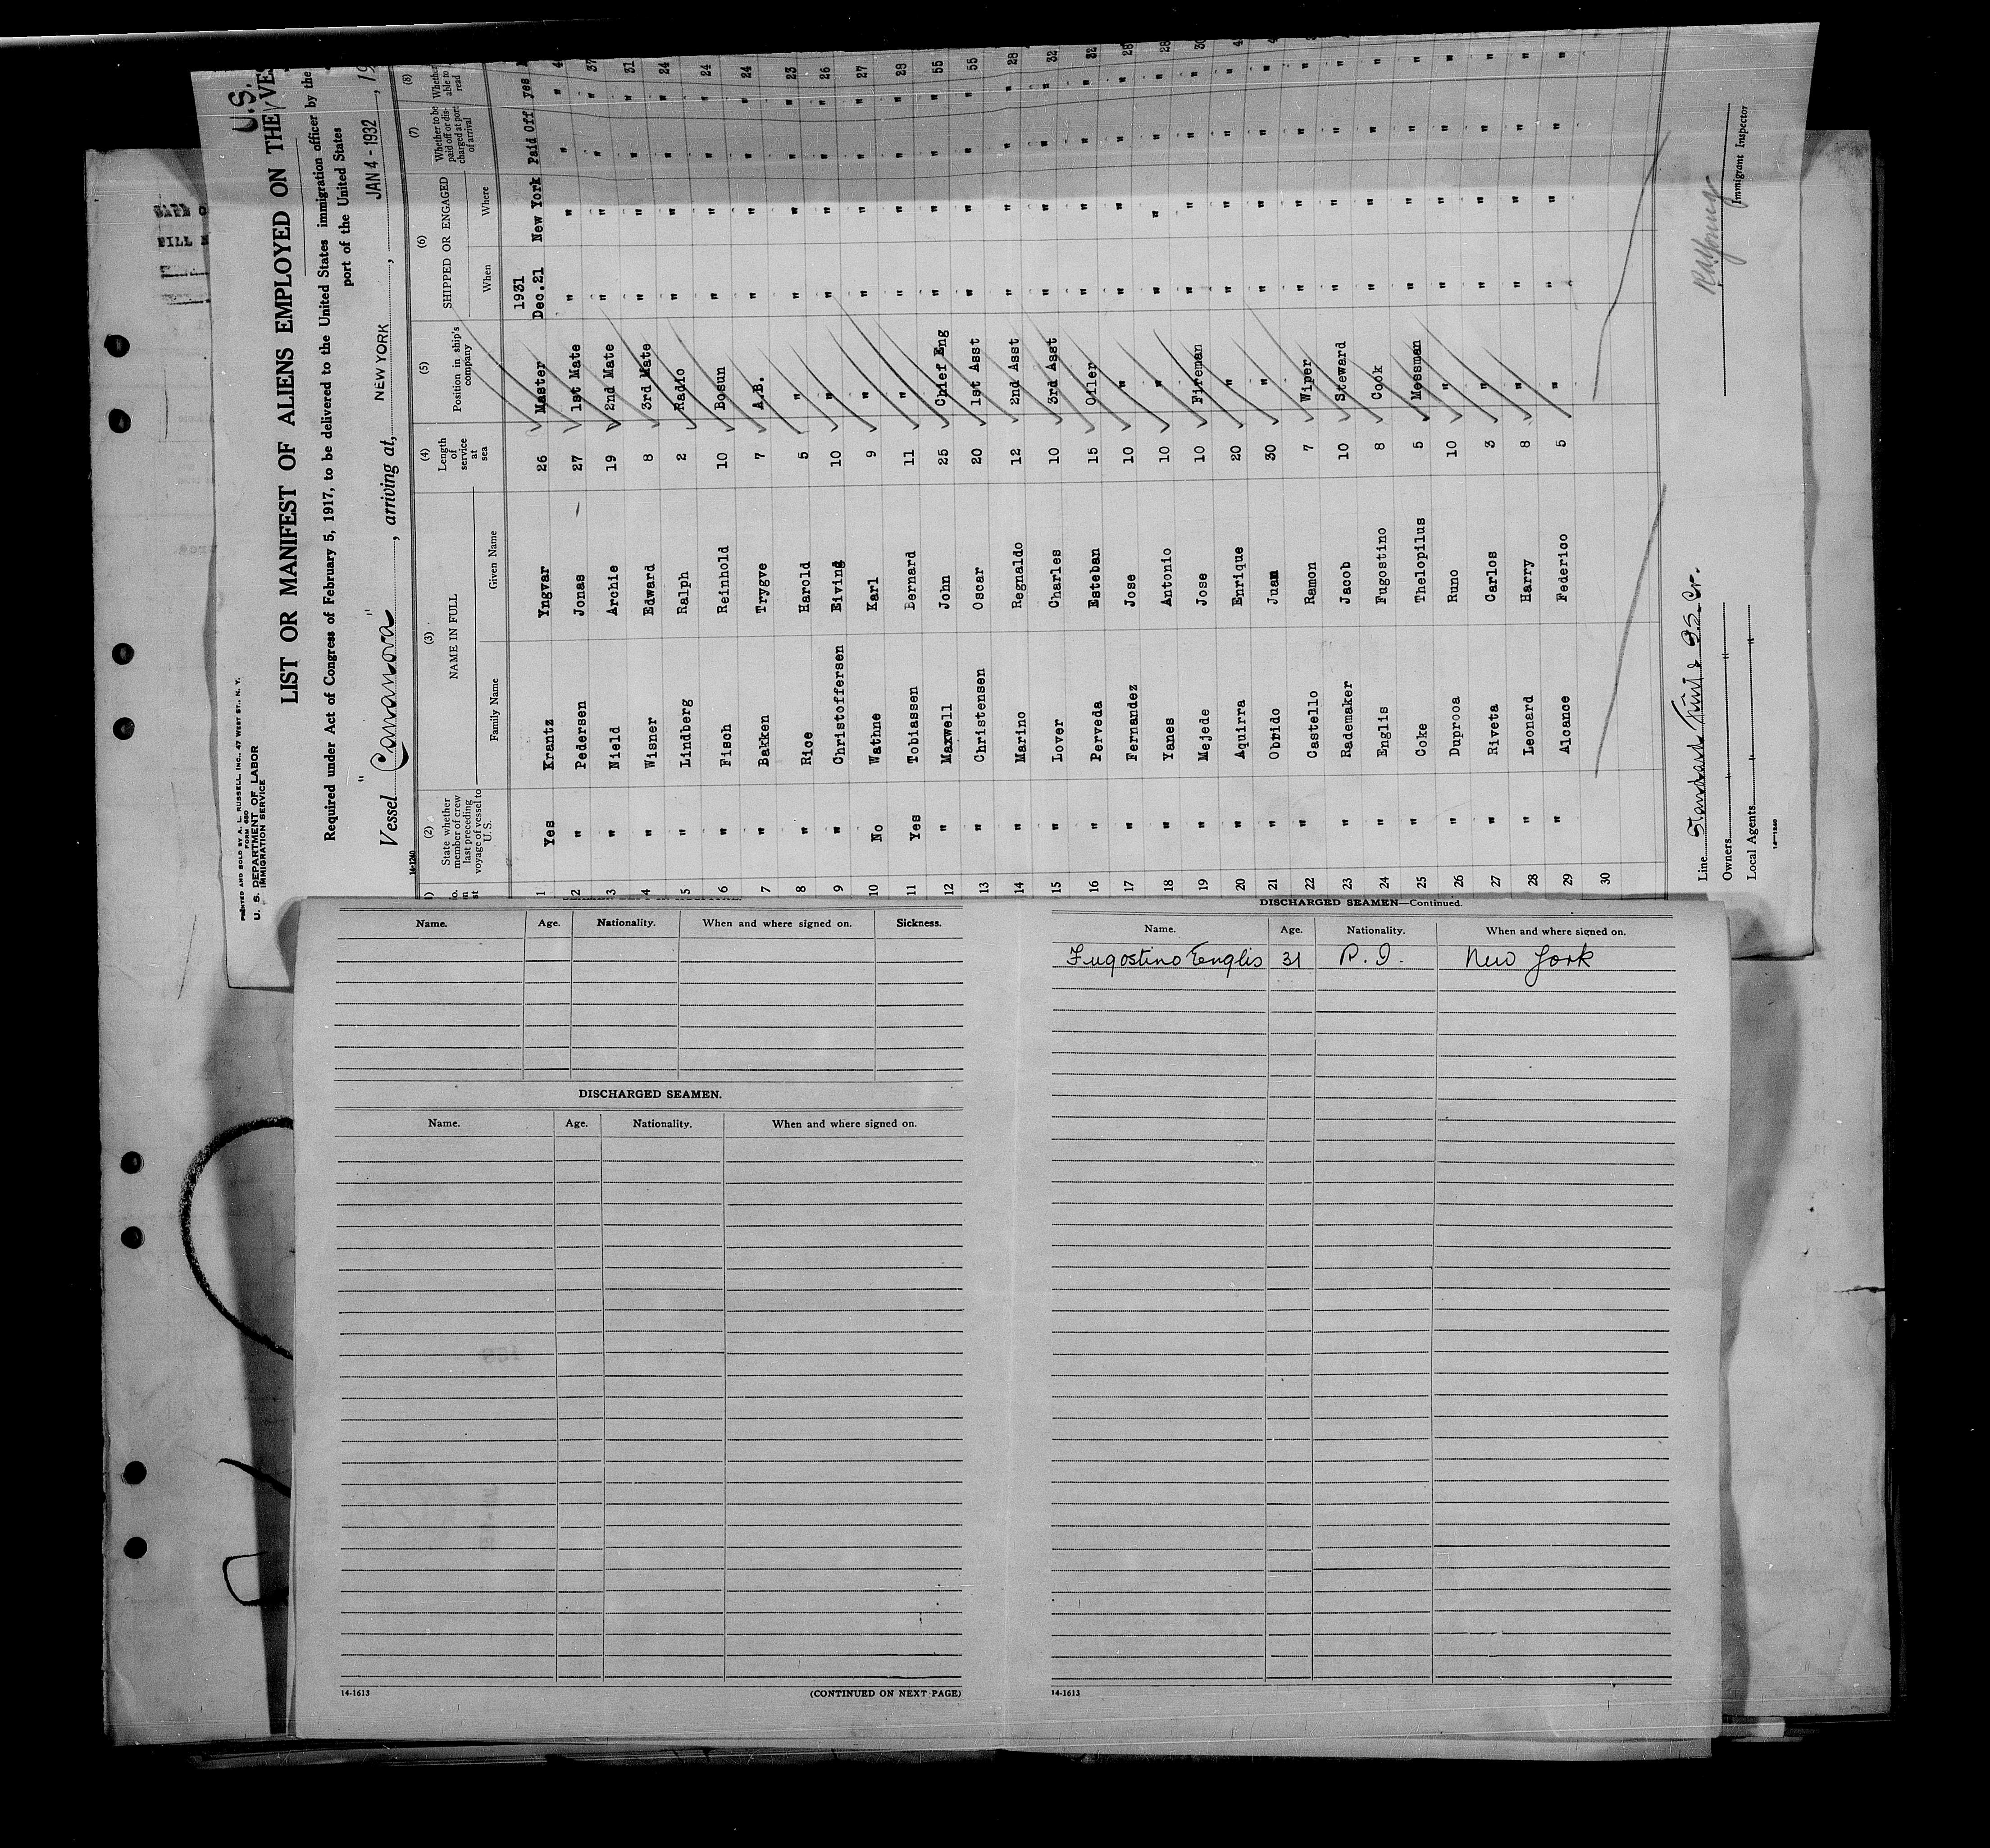 PRINTED AND SOLD BY A. L. RUSSELL, INC., 47 WEST ST., N. Y.
FORM 680
U. S. DEPARTMENT OF LABOR
IMMIGRATION SERVICE
U.S.
LIST OR MANIFEST OF ALIENS EMPLOYED ON THE
Required under Act of Congress of February 5, 1917, to be delivered to the United States immigration officer by the
port of the United States
Vessel "Cananova", arriving at, NEW YORK, JAN 4 - 1932, 19
14-1240
(2) (3) (4) (5) (6) (7) (8)
State whether member of crew last preceding voyage of vessel to U. S. NAME IN FULL Family Name Given Name Length of service at sea Position in ship's company SHIPPED OR ENGAGED When Where Whether to be paid off or discharged at port of arrival Whether able to read
1931
1 Yes Krantz Yngvar 26 Master Dec.21 New York Paid Off yes
2 " Pedersen Jonas 27 1st Mate " " " "
3 " Nield Archie 19 2nd Mate " " " " 37
4 " Wisner Edward 8 3rd Mate " " " " 31
5 " Lindberg Ralph 2 Radio " " " " 24
6 " Fisch Reinhold 10 Bosun " " " " 24
7 " Bakken Trygve 7 A.B. " " " " 24
8 " Rice Harold 5 " " " " " 23
9 " Christoffersen Eiving 10 " " " " " 26
10 No Wathne Karl 9 " " " " " 27
11 Yes Tobiassen Bernard 11 " " " " " 28
12 " Maxwell John 25 Chief Eng " " " " 55
13 " Christensen Oscar 20 1st Asst " " " " 55
14 " Marino Regnaldo 12 2nd Asst " " " " 28
15 " Lover Charles 10 3rd Asst " " " " 32
16 " Perveda Esteban 15 Oiler " " " " 32
17 " Fernandez Jose 10 " " " " " 28
18 " Yanes Antonio 10 " " " " " 28
19 " Mejede Jose 10 Fireman " " " " 30
20 " Aquirra Enrique 20 " " " " "
21 " Obrido Juan 30 " " " " "
22 " Castello Ramon 7 Wiper " " " "
23 " Rademaker Jacob 10 Steward " " " "
24 " Englis Fugostino 8 Cook " " " "
25 " Coke Thelopilus 5 Messman " " " "
26 " Duprooa Runo 10 " " " " "
27 " Riveta Carlos 3 " " " " "
28 " Leonard Harry 8 " " " " "
29 " Alcance Federico 5 " " " " "
30
Line Standard Fruit & S.S. Co.
Owners " "
Local Agents " "
14-1240
Immigrant Inspector
Name. Age. Nationality. When and where signed on. Sickness.
DISCHARGED SEAMEN.
Name. Age. Nationality. When and where signed on.
14-1613 (CONTINUED ON NEXT PAGE)
DISCHARGED SEAMEN—Continued.
Name. Age. Nationality. When and where signed on.
Fugostino Englis 31 P.I. New York
14-1613